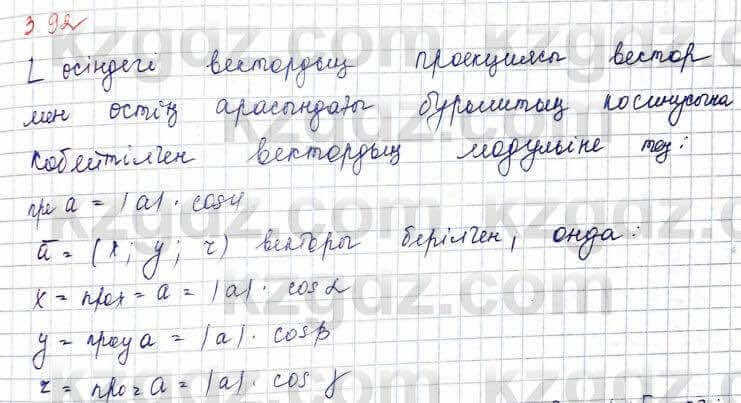 392
L осіндегі вектордың проекциясы вектор
мен остің арасындағы бұрыштың косинусына
көбейтілген вектордың модуліне тең:
пре a = |a| · cos φ
ā = (x; y; z) векторы берілген, онда:
x = прох = a = |a| · cos α
y = проy a = |a| · cos β
z = проz a = |a| · cos γ
kzgdz.com